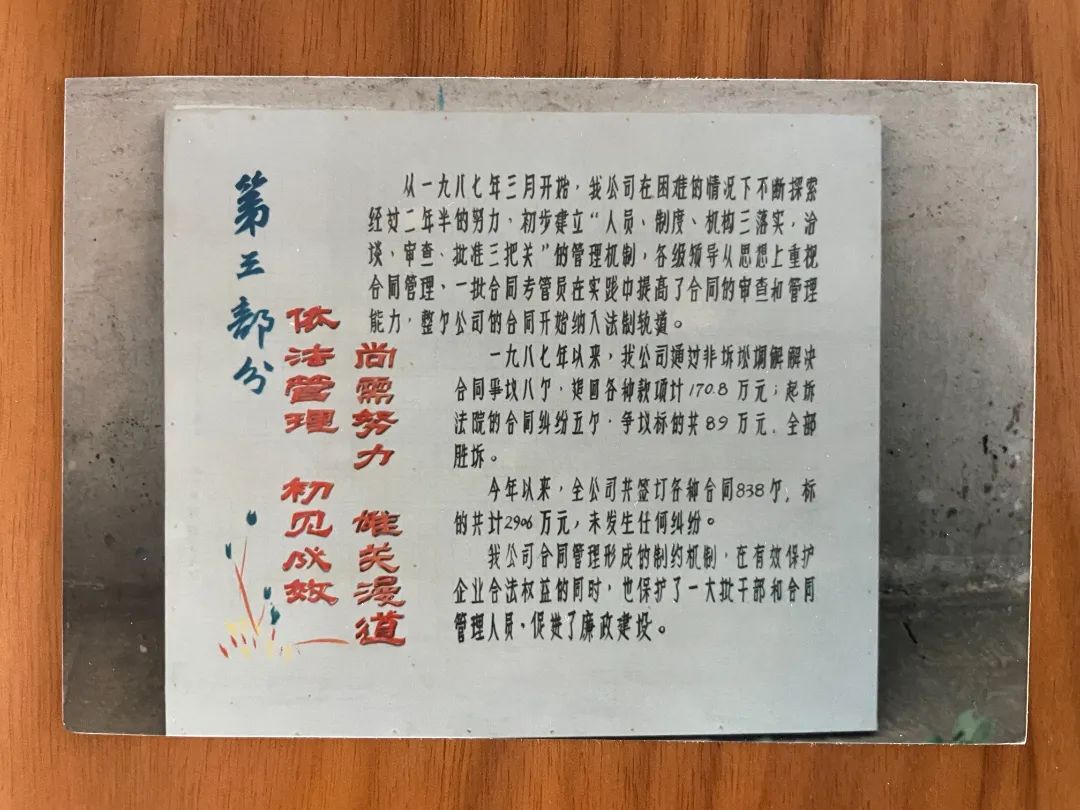 第三部分
依法管理 初见成效
尚需努力 雄关漫道
从一九八七年三月开始，我公司在困难的情况下不断探索
经过二年半的努力，初步建立“人员、制度、机构三落实，洽
谈、审查、批准三把关”的管理机制，各级领导从思想上重视
合同管理、一批合同专管员在实践中提高了合同的审查和管理
能力，整个公司的合同开始纳入法制轨道。
一九八七年以来，我公司通过非诉讼调解解决
合同争议八个，追回各种款项计170.8万元；起诉
法院的合同纠纷五个，争议标的共89万元，全部
胜诉。
今年以来，全公司共签订各种合同838个，标
的共计2906万元，未发生任何纠纷。
我公司合同管理形成的制约机制，在有效保护
企业合法权益的同时，也保护了一大批干部和合同
管理人员，促进了廉政建设。